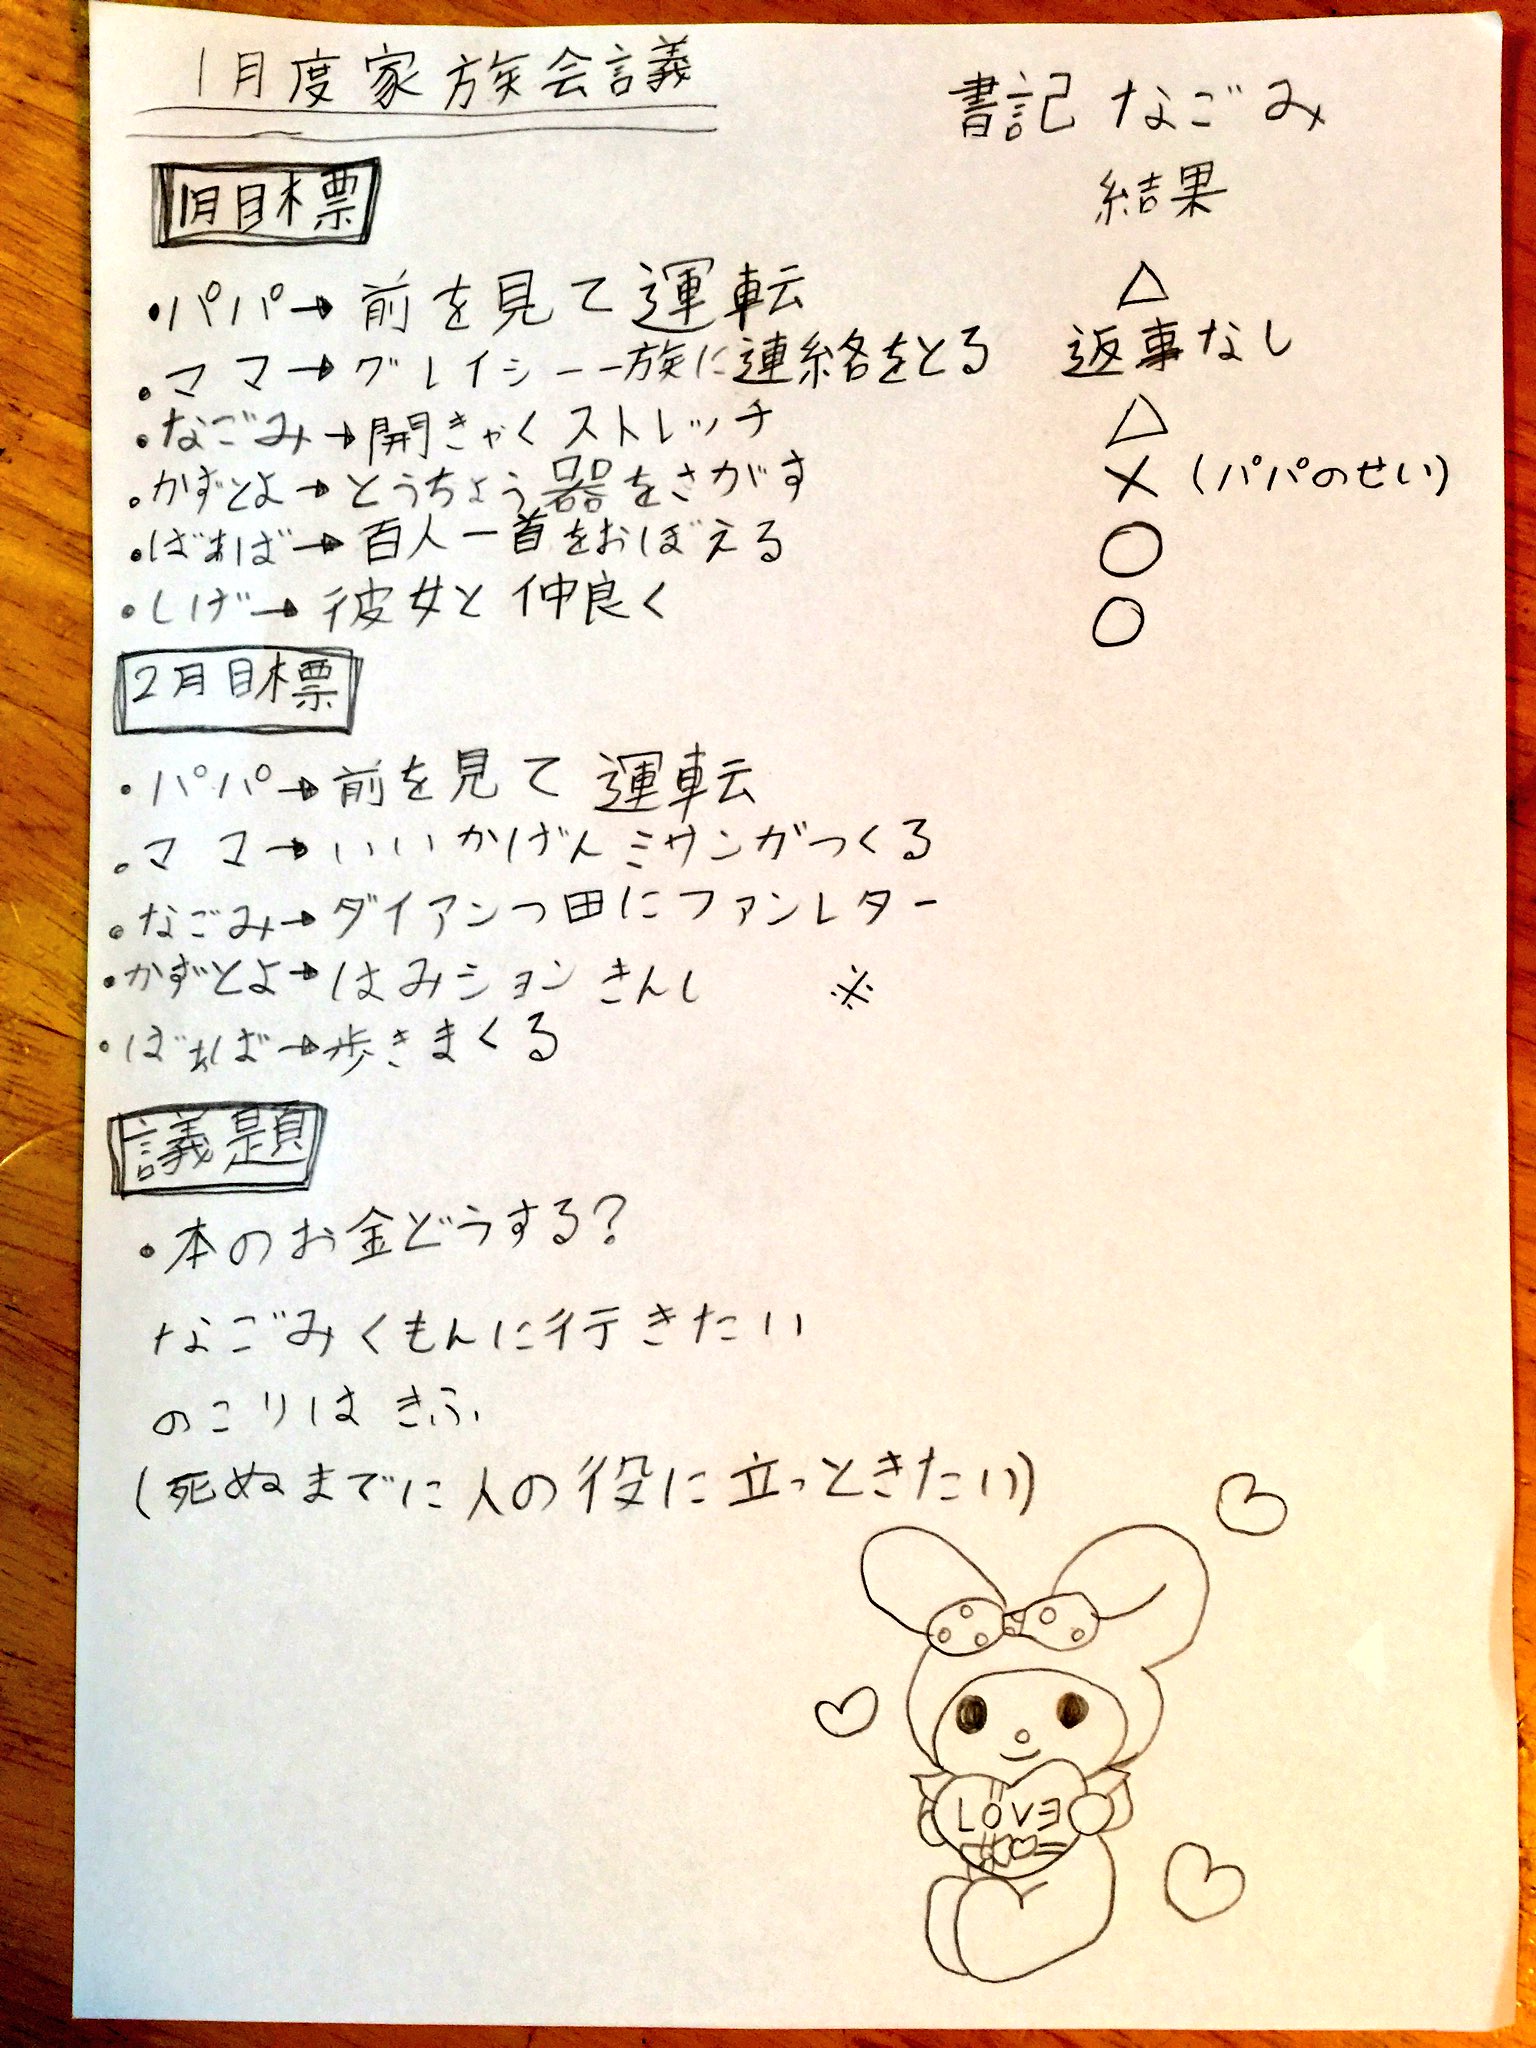 1月度家族会議
書記 なごみ
1月目標
結果
・パパ→前を見て運転 △
・ママ→グレイシー一族に連絡をとる 返事なし
・なごみ→開きゃくストレッチ △
・かずとよ→とうちょう器をさがす ×(パパのせい)
・ばぁば→百人一首をおぼえる ○
・しげ→彼女と仲良く ○
2月目標
・パパ→前を見て運転
・ママ→いいかげんミサンガつくる
・なごみ→ダイアンつ田にファンレター
・かずとよ→はみションきんし ※
・ばぁば→歩きまくる
議題
・本のお金どうする?
なごみくもんに行きたい
のこりはきふ
(死ぬまでに人の役に立っときたい)
LOVE